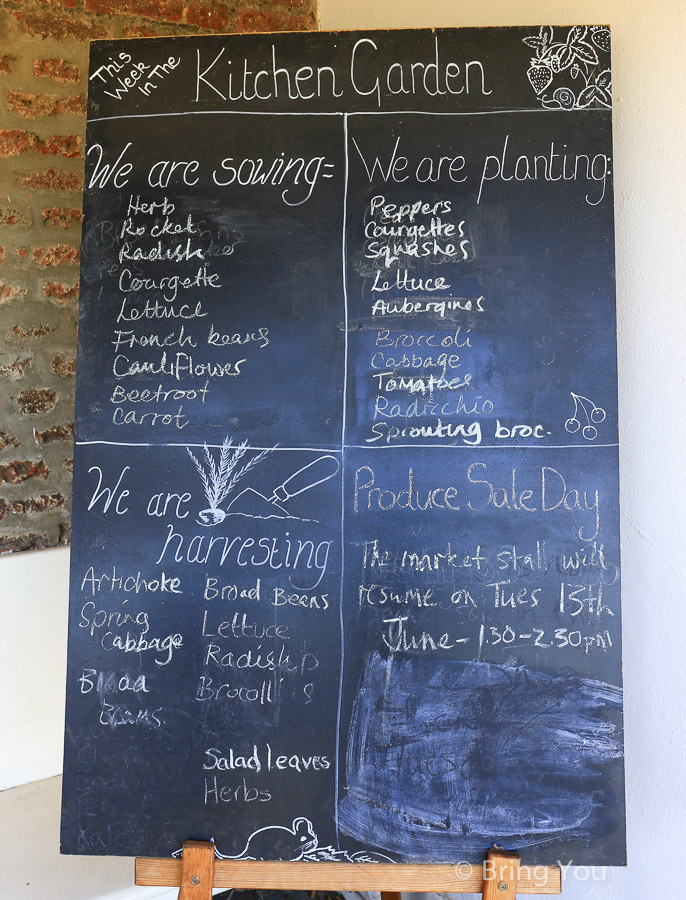 This
Week
In The
Kitchen Garden
We are sowing=
Herb
Rocket
Radish
Courgette
Lettuce
French beans
Cauliflower
Beetroot
Carrot
We are planting:
Peppers
Courgettes
Squashes
Lettuce
Aubergines
Broccoli
Cabbage
Tomatoes
Radicchio
Sprouting broc.
We are
harvesting
Artichoke
Spring
Cabbage
Broad
Beans
Broad Beans
Lettuce
Radish
Brocoll
Salad leaves
Herbs
Produce Sale Day
The market stall will
resume on Tues 15th
June - 1.30-2.30pm
© Bring You